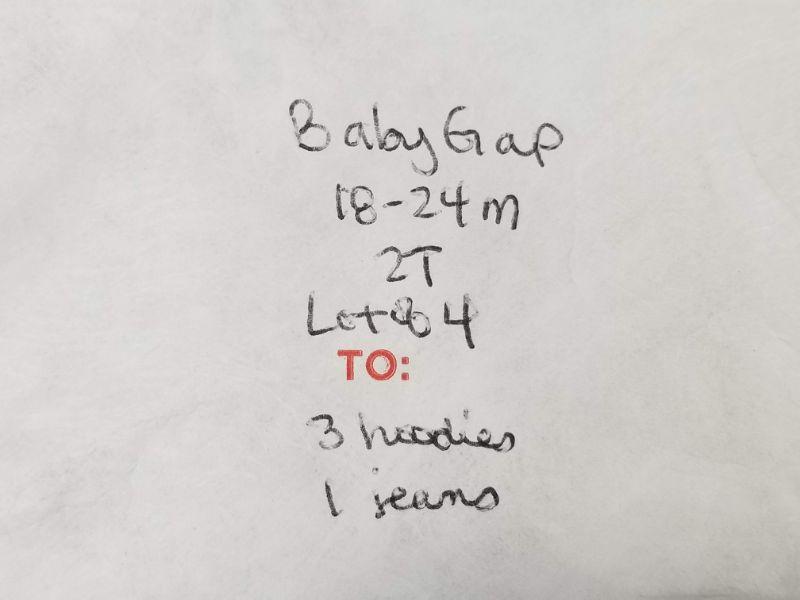 Baby Gap
18-24m
2T
Lot of 4
TO:
3 hoodies
1 jeans